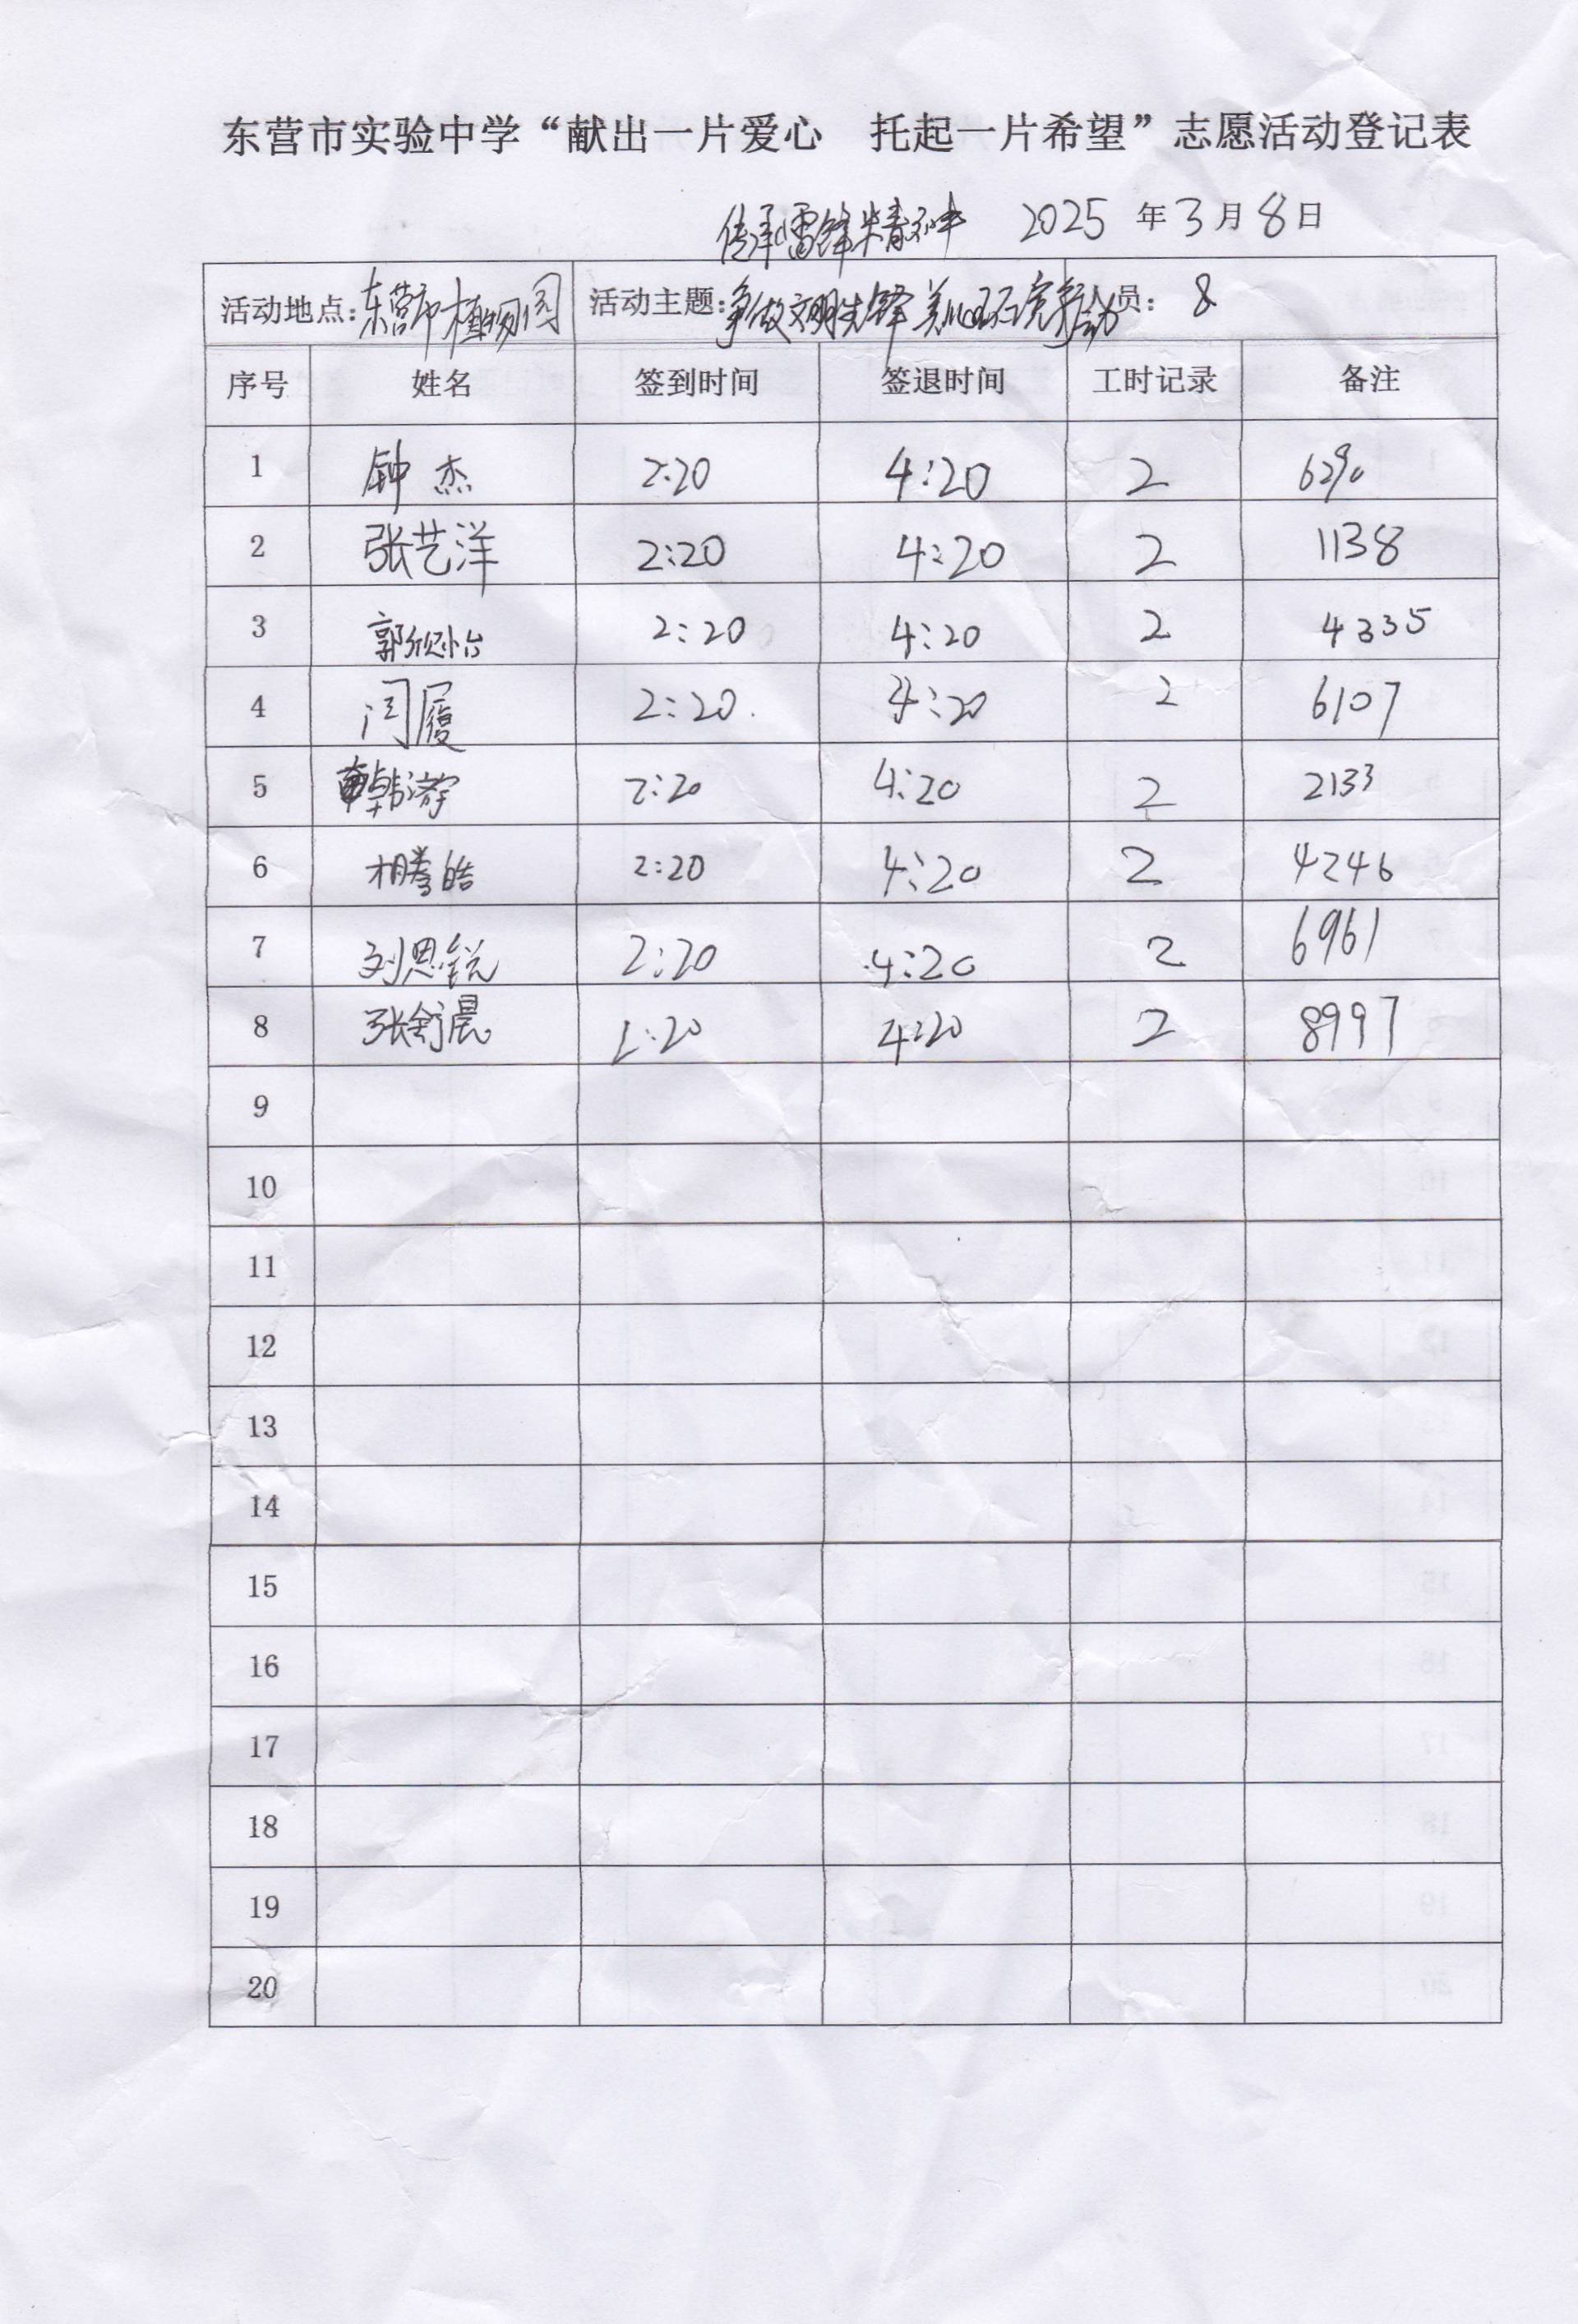 东营市实验中学“献出一片爱心　托起一片希望”志愿活动登记表
传承雷锋精神 2025 年 3 月 8 日
活动地点：东营市植物园 活动主题：争做文明先锋 美化环境行动 员： 8
序号 姓名 签到时间 签退时间 工时记录 备注
1 钟杰 2:20 4:20 2 6290
2 张艺洋 2:20 4:20 2 1138
3 郭欣怡 2:20 4:20 2 4335
4 闫履 2:20 4:20 2 6107
5 韩 2:20 4:20 2 2133
6 皓 2:20 4:20 2 4246
7 刘恩锐 2:20 4:20 2 6961
8 张舒晨 2:20 4:20 2 8997
9
10
11
12
13
14
15
16
17
18
19
20